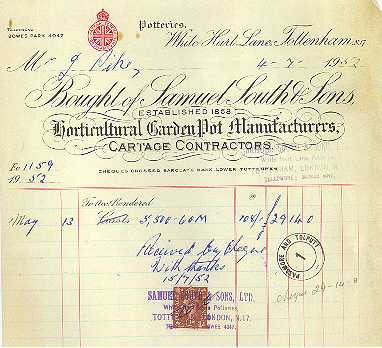 TELEPHONE
BOWES PARK 4047.
Potteries,
White Hart Lane, Tottenham, N.17
Mr J Pike, 4-7-1952
Bought of Samuel South & Sons,
ESTABLISHED 1868
Horticultural Garden Pot Manufacturers,
CARTAGE CONTRACTORS.
CHEQUES CROSSED BARCLAYS BANK LOWER TOTTENHAM
Fo 1159
1952
To a/c Rendered
May 13 3,500-60M 108/- £29 14 0
Received by Cheque
With thanks
15/7/52
PASSMORE AND TOLPUTT
1
Cheque 29-14-0
SAMUEL SOUTH & SONS, LTD.
White Hart Lane Potteries
TOTTENHAM, LONDON, N.17.
4047.